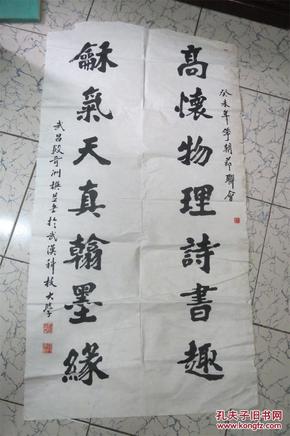 癸未年學朝節聯會
高懷物理詩書趣
龢氣天真翰墨緣
武昌段奇洲撰並書於武漢科技大學
孔夫子旧书网